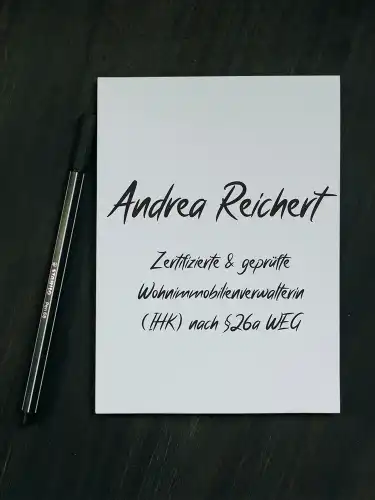 Andrea Reichert
Zertifizierte & geprüfte
Wohnimmobilienverwalterin
(IHK) nach §26a WEG